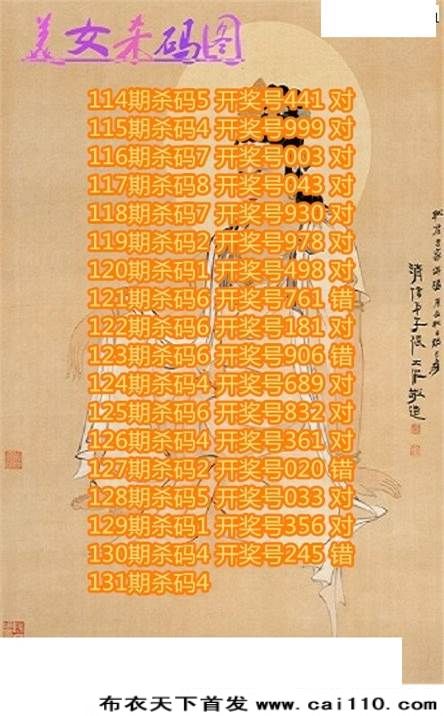 美女杀码图
114期杀码5 开奖号441 对
115期杀码4 开奖号999 对
116期杀码7 开奖号003 对
117期杀码8 开奖号043 对
118期杀码7 开奖号930 对
119期杀码2 开奖号978 对
120期杀码1 开奖号498 对
121期杀码6 开奖号761 错
122期杀码6 开奖号181 对
123期杀码6 开奖号906 错
124期杀码4 开奖号689 对
125期杀码6 开奖号832 对
126期杀码4 开奖号361 对
127期杀码2 开奖号020 错
128期杀码5 开奖号033 对
129期杀码1 开奖号356 对
130期杀码4 开奖号245 错
131期杀码4
布衣天下首发 www.cai110.com